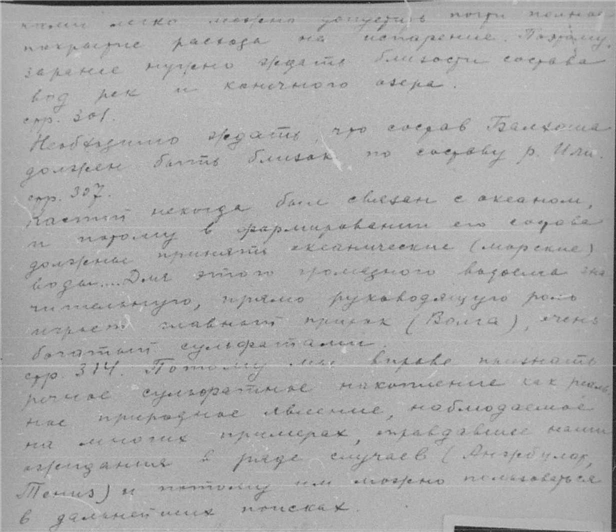 ными легко можно допустить почти полное
покрытие расхода на испарение. Поэтому
заранее нужно ждать близости состава
вод рек и конечного озера.
стр. 301.
Необходимо ждать, что состав Балхаша
должен быть близок по составу р. Или.
стр. 307.
Каспий некогда был связан с океаном,
и потому в формировании его состава
должны принять океанические (морские)
воды.... Для этого громадного водоема зна
чительную, прямо руководящую роль
играет главный приток (Волга), очень
богатый сульфатами.
стр. 314. Потому мы вправе признать
речное сульфатное накопление как реаль
ное природное явление, наблюдаемое
на многих примерах, оправдавшее наши
ожидания в ряде случаев (
Тениз) и потому им можно пользоваться
в дальнейших поисках.